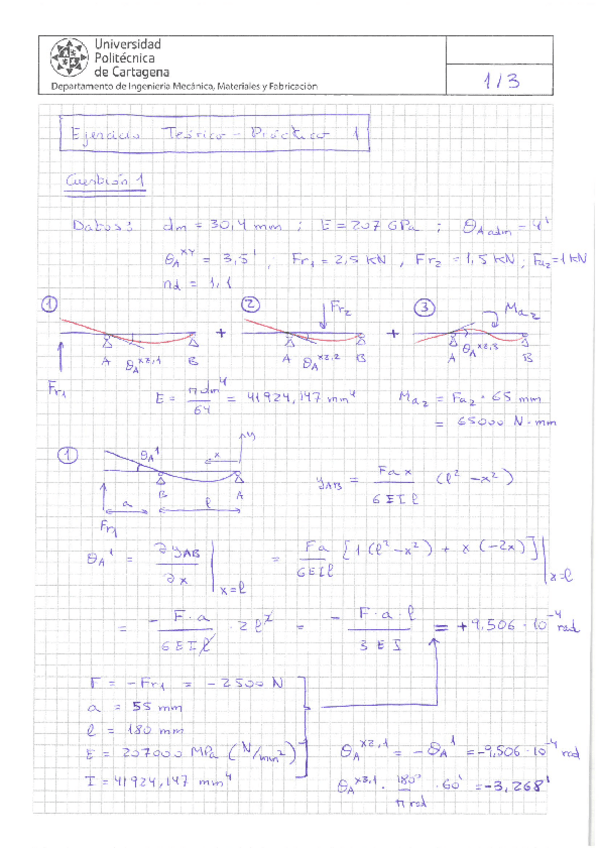 Universidad
Politécnica
de Cartagena
Departamento de Ingeniería Mecánica, Materiales y Fabricación
1/3
Ejercicio Teórico-Práctico 1
Cuestión 1
Datos: dm = 30,4 mm ; E = 207 GPa ; θA adm = 4'
θA^xy = 3,5' ; Fr1 = 2,5 kN , Fr2 = 1,5 kN ; Fa2 = 1 kN
nd = 1,1
① + ② Fr2 + ③ Ma2
A B A B A B
θA^xz,1 θA^xz,2 θA^xz,3
Fr1
E = πdm⁴/64 = 41924,147 mm⁴ Ma2 = Fa2 · 65 mm
= 65000 N·mm
① θA¹ x y
B A
a l
Fr1
yAB = Fax/6EIl (l² - x²)
θA¹ = ∂yAB/∂x |x=l = Fa/6EIl [1(l² - x²) + x(-2x)] |x=l
= - F·a/6EIl · 2l² = - F·a·l/3EI = +9,506·10⁻⁴ rad
F = -Fr1 = -2500 N
a = 55 mm
l = 180 mm
E = 207000 MPa (N/mm²)
I = 41924,147 mm⁴
θA^xz,1 = -θA¹ = -9,506·10⁻⁴ rad
θA^xz,1 · 180°/π rad · 60' = -3,268'